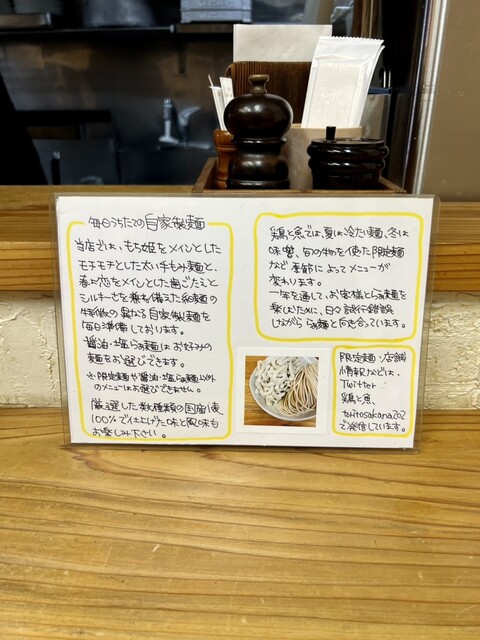 毎日うちたての自家製麺
当店では、もち姫をメインとした
モチモチとした太い手もみ麺と、
春よ恋をメインとした歯ごたえと
シルキーさを兼ね備えた細麺の
特徴の異なる自家製麺を
毎日準備しております。
醤油・塩らぁ麺はお好みの
麺をお選びできます。
※限定麺や醤油・塩らぁ麺以外
のメニューはお選びできません。
厳選した数種類の国産小麦
100%で仕上げた味と風味も
お楽しみ下さい。
鶏と魚では、夏は冷たい麺、冬は
味噌、旬の物を使った限定麺
など季節によってメニューが
変わります。
一年を通して、お客様とらぁ麺を
楽しむために、日々試行錯誤
しながららぁ麺と向き合っています。
限定麺・店舗
情報などは、
Twitter
鶏と魚
toritosakana202
で発信しています。